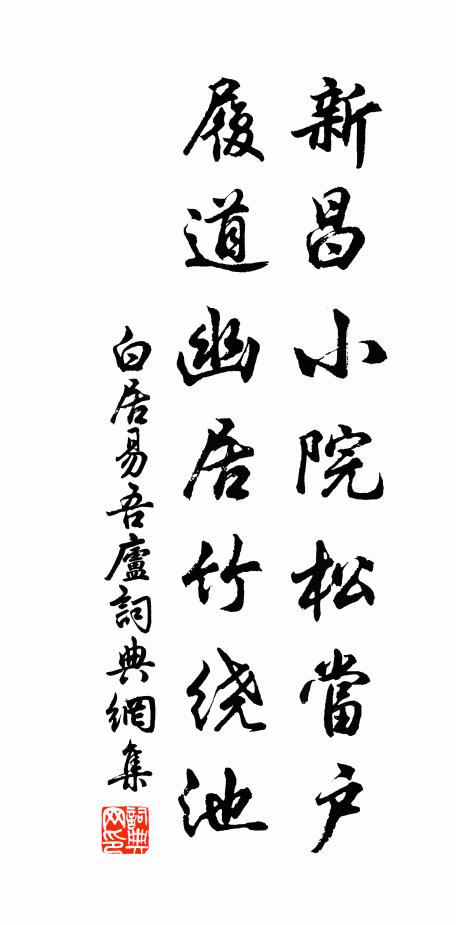 新昌小院松當户
履道幽居竹绕池
白居易吾廬詞典網集
詞典网印